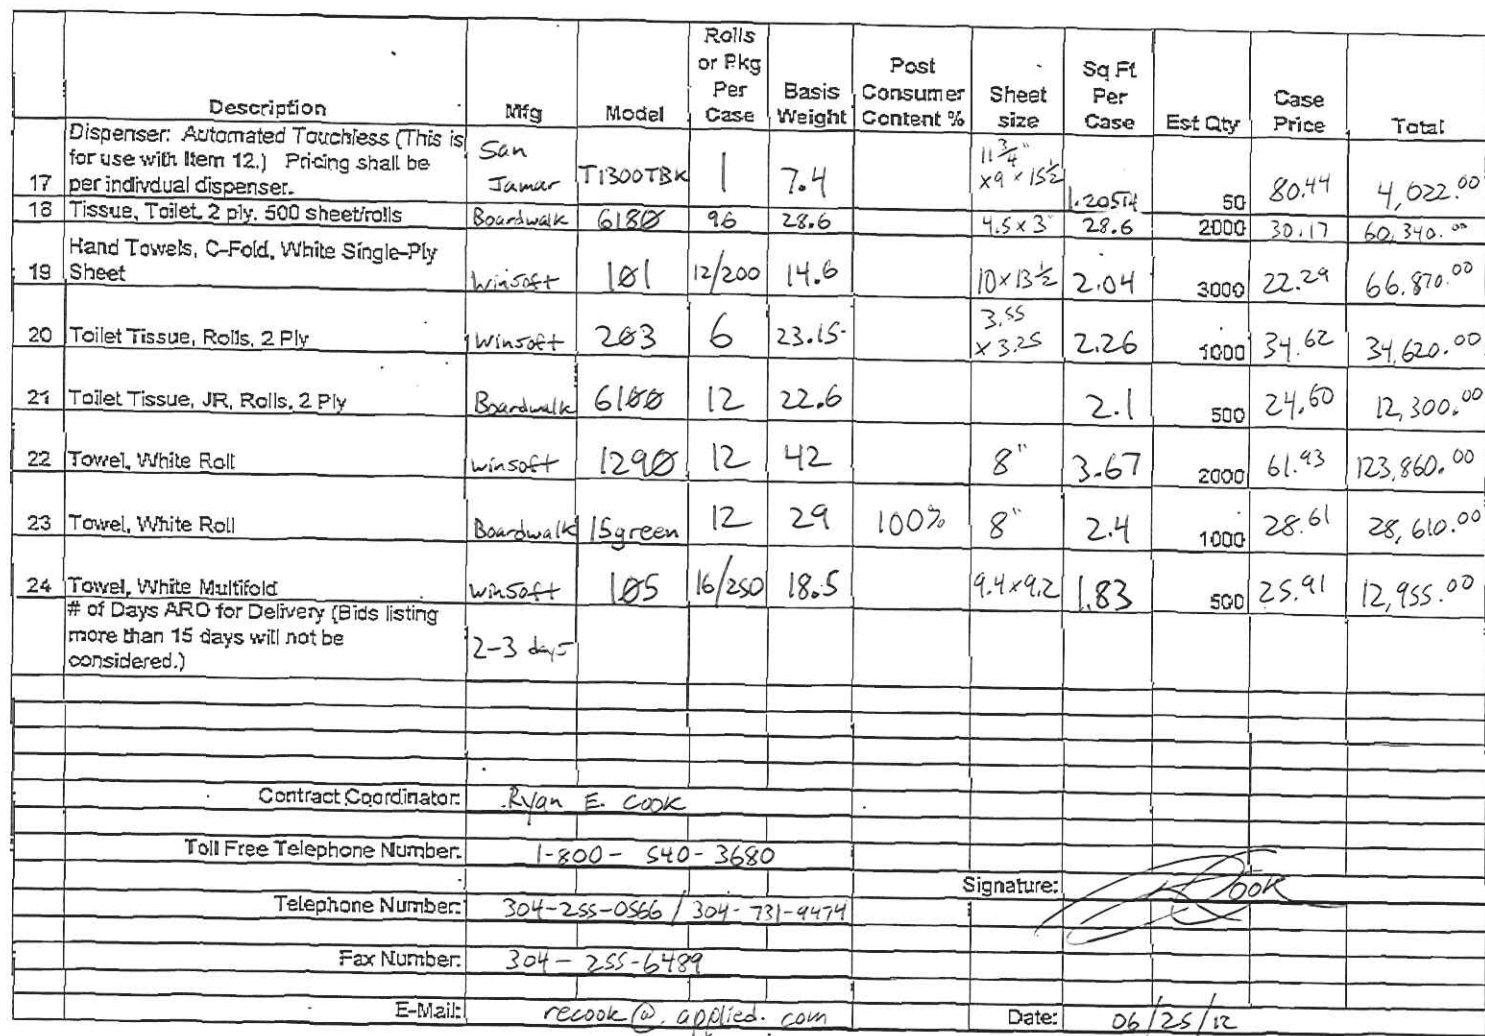 Description Mfg Model Rolls or Pkg Per Case Basis Weight Post Consumer Content % Sheet size Sq Ft Per Case Est Qty Case Price Total
17 Dispenser: Automated Touchless (This is for use with Item 12.) Pricing shall be per indivdual dispenser. San Jamar T1300TBK 1 7.4 11 3/4" x9 x 15 1/2 50 80.44 4,022.00
18 Tissue, Toilet, 2 ply, 500 sheet/rolls Boardwalk 6180 96 28.6 4.5 x 3" 28.6 2000 30.17 60,340.00
19 Hand Towels, C-Fold, White Single-Ply Sheet Winsoft 101 12/200 14.6 10 x 13 1/2 2.04 3000 22.29 66,870.00
20 Toilet Tissue, Rolls, 2 Ply Winsoft 203 6 23.15 3.55 x 3.25 2.26 1000 34.62 34,620.00
21 Toilet Tissue, JR, Rolls, 2 Ply Boardwalk 6100 12 22.6 2.1 500 24.60 12,300.00
22 Towel, White Roll winsoft 1290 12 42 8" 3.67 2000 61.93 123,860.00
23 Towel, White Roll Boardwalk 15green 12 29 100% 8" 2.4 1000 28.61 28,610.00
24 Towel, White Multifold winsoft 105 16/250 18.5 9.4 x 9.2 1.83 500 25.91 12,955.00
# of Days ARO for Delivery (Bids listing more than 15 days will not be considered.) 2-3 days
Contract Coordinator: Ryan E. Cook
Toll Free Telephone Number: 1-800-540-3680
Signature: Cook
Telephone Number: 304-255-0566 / 304-731-9474
Fax Number: 304-255-6489
E-Mail: recook@.applied.com Date: 06/25/12